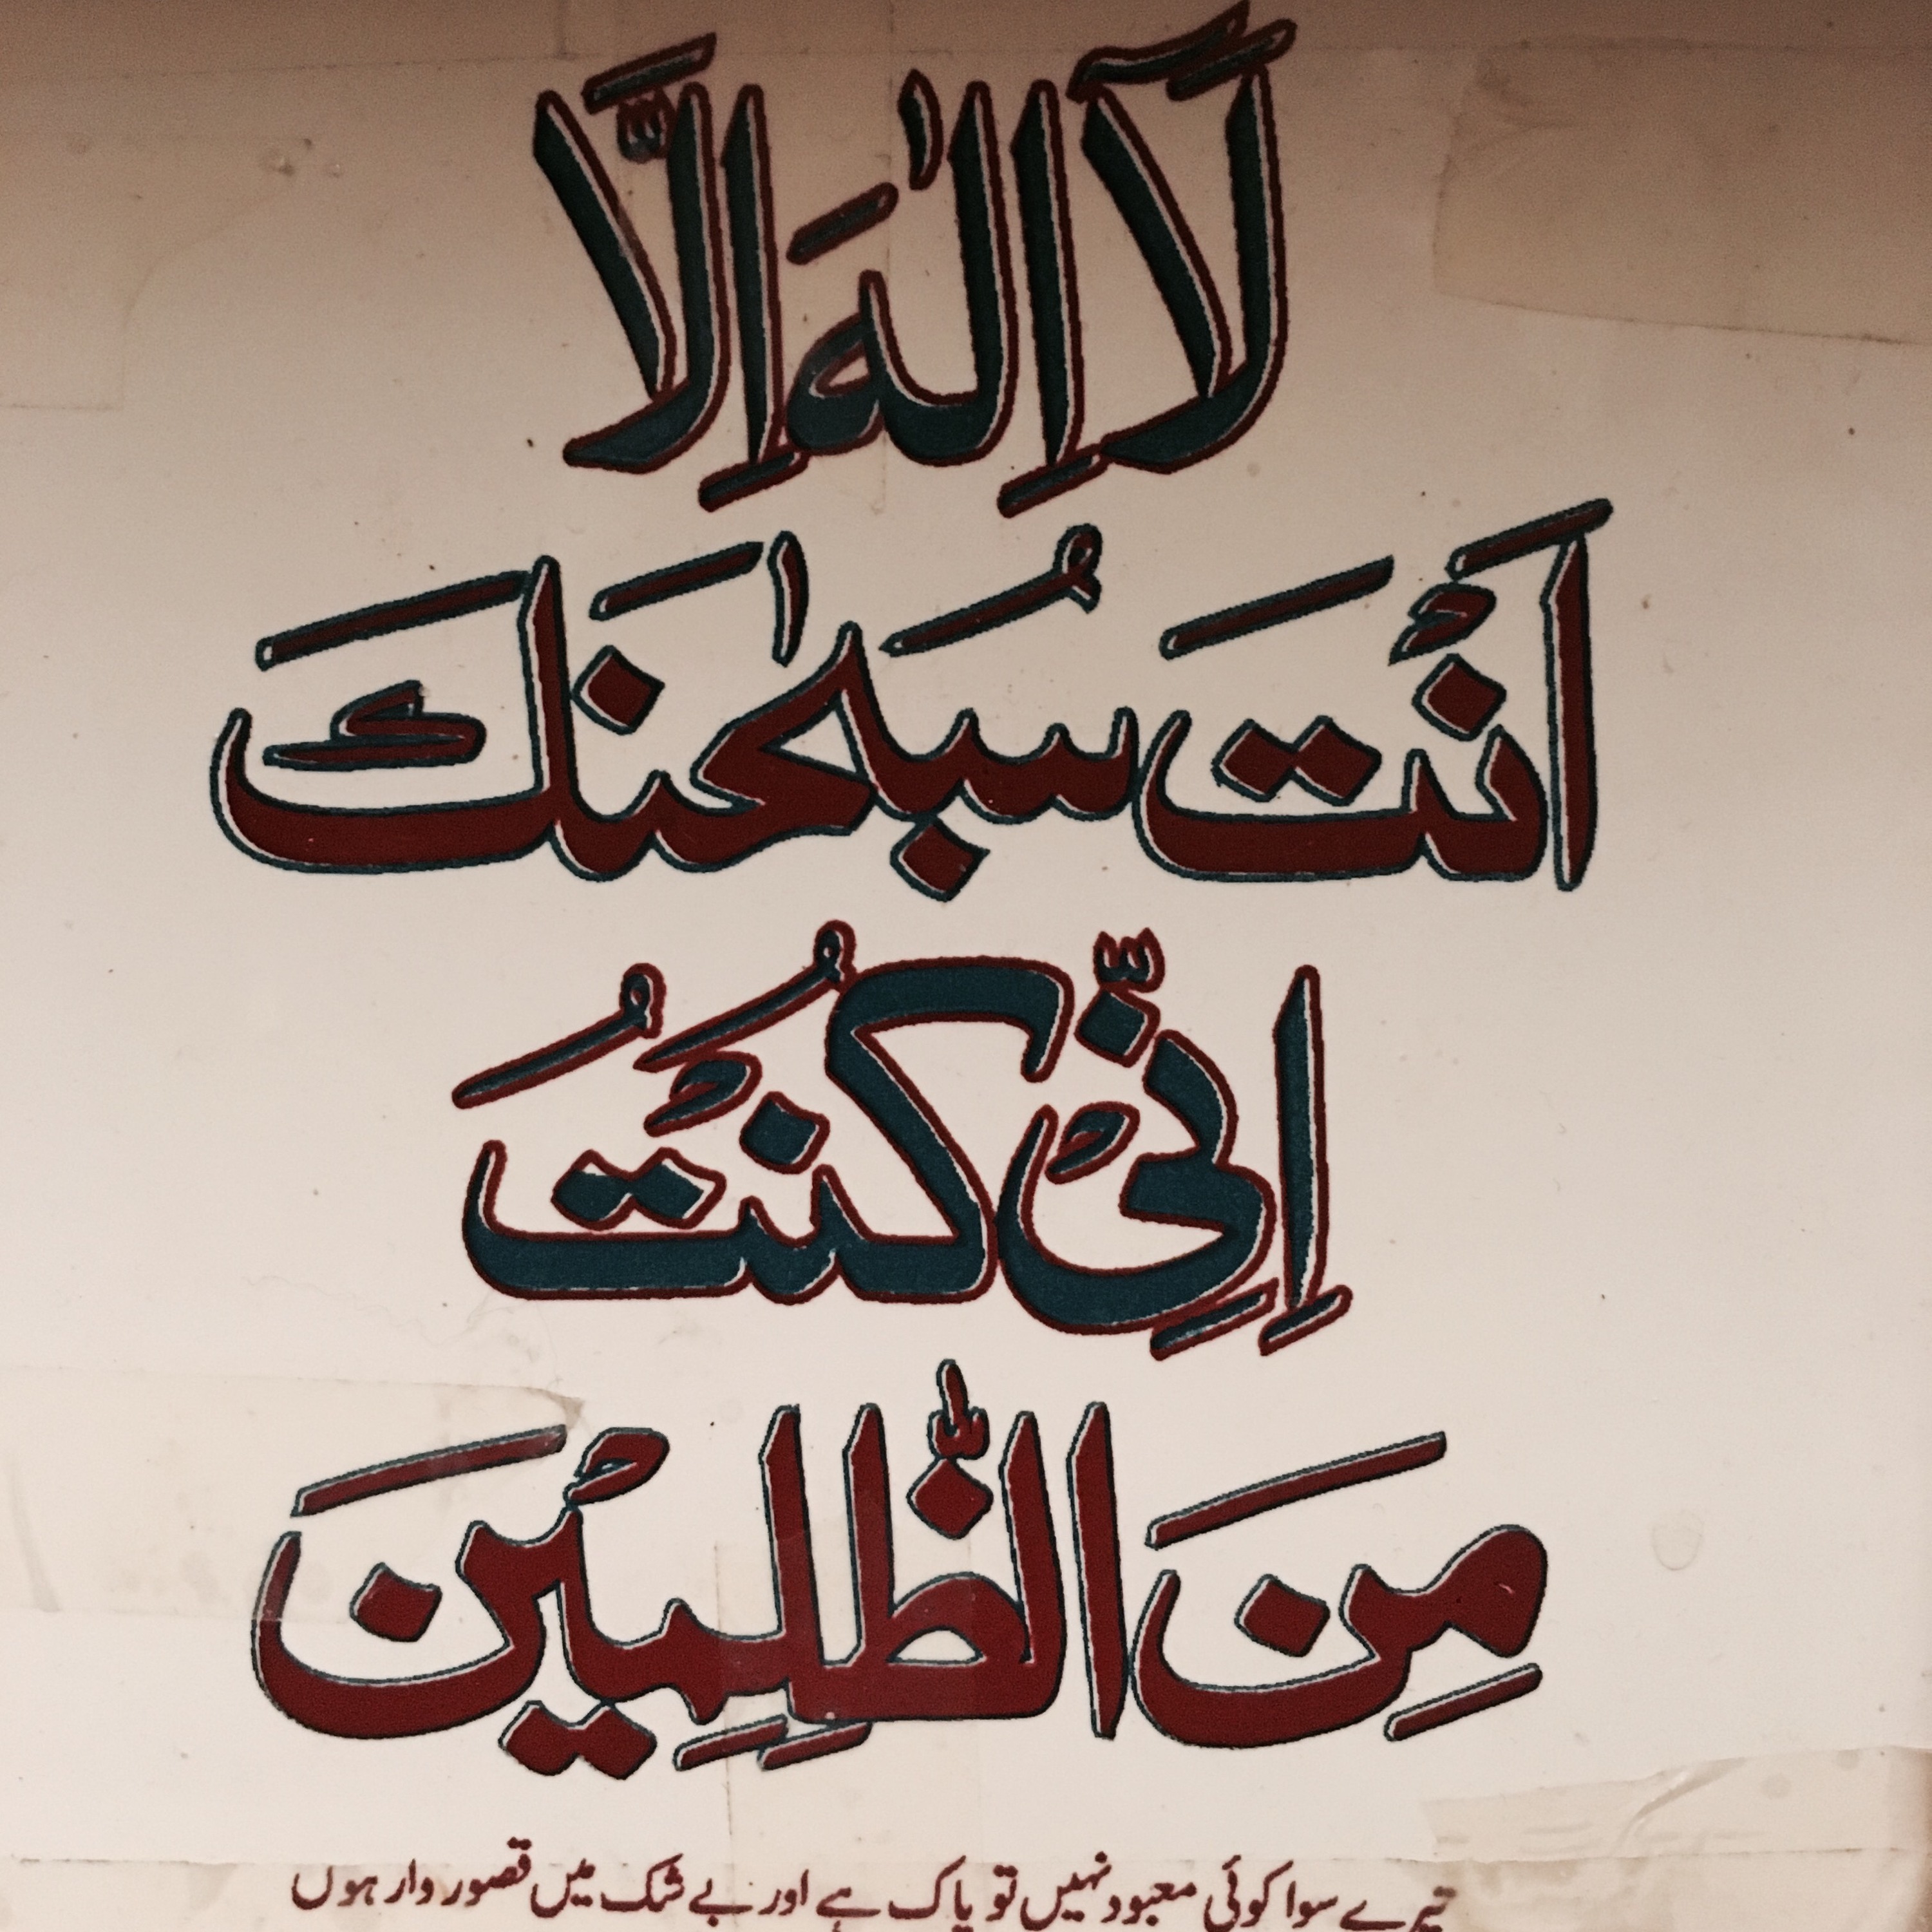 لَآ اِلٰهَ اِلَّا
اَنْتَ سُبْحٰنَكَ
اِنِّیْ كُنْتُ
مِنَ الظّٰلِمِیْنَ
تیرے سوا کوئی معبود نہیں تو پاک ہے اور بے شک میں قصور وار ہوں